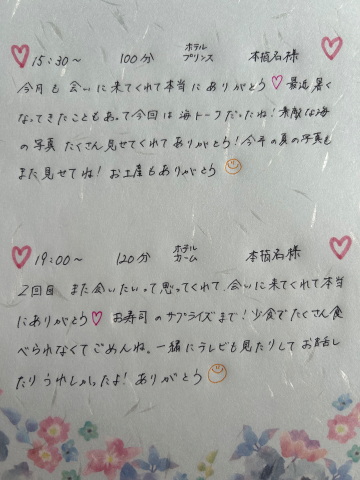 15:30〜 100分 ホテルプリンス 本指名様
今月も会いに来てくれて本当にありがとう♡最近暑く
なってきたこともあって今回は海トークだったね!素敵な海
の写真たくさん見せてくれてありがとう!今年の夏の写真も
また見せてね!お土産もありがとう☺
19:00〜 120分 ホテルカーム 本指名様
2回目 また会いたいって思ってくれて、会いに来てくれて本当
にありがとう♡ お寿司のサプライズまで!少食でたくさん食
べられなくてごめんね。一緒にテレビも見たりしてお話し
たりうれしかったよ!ありがとう☺